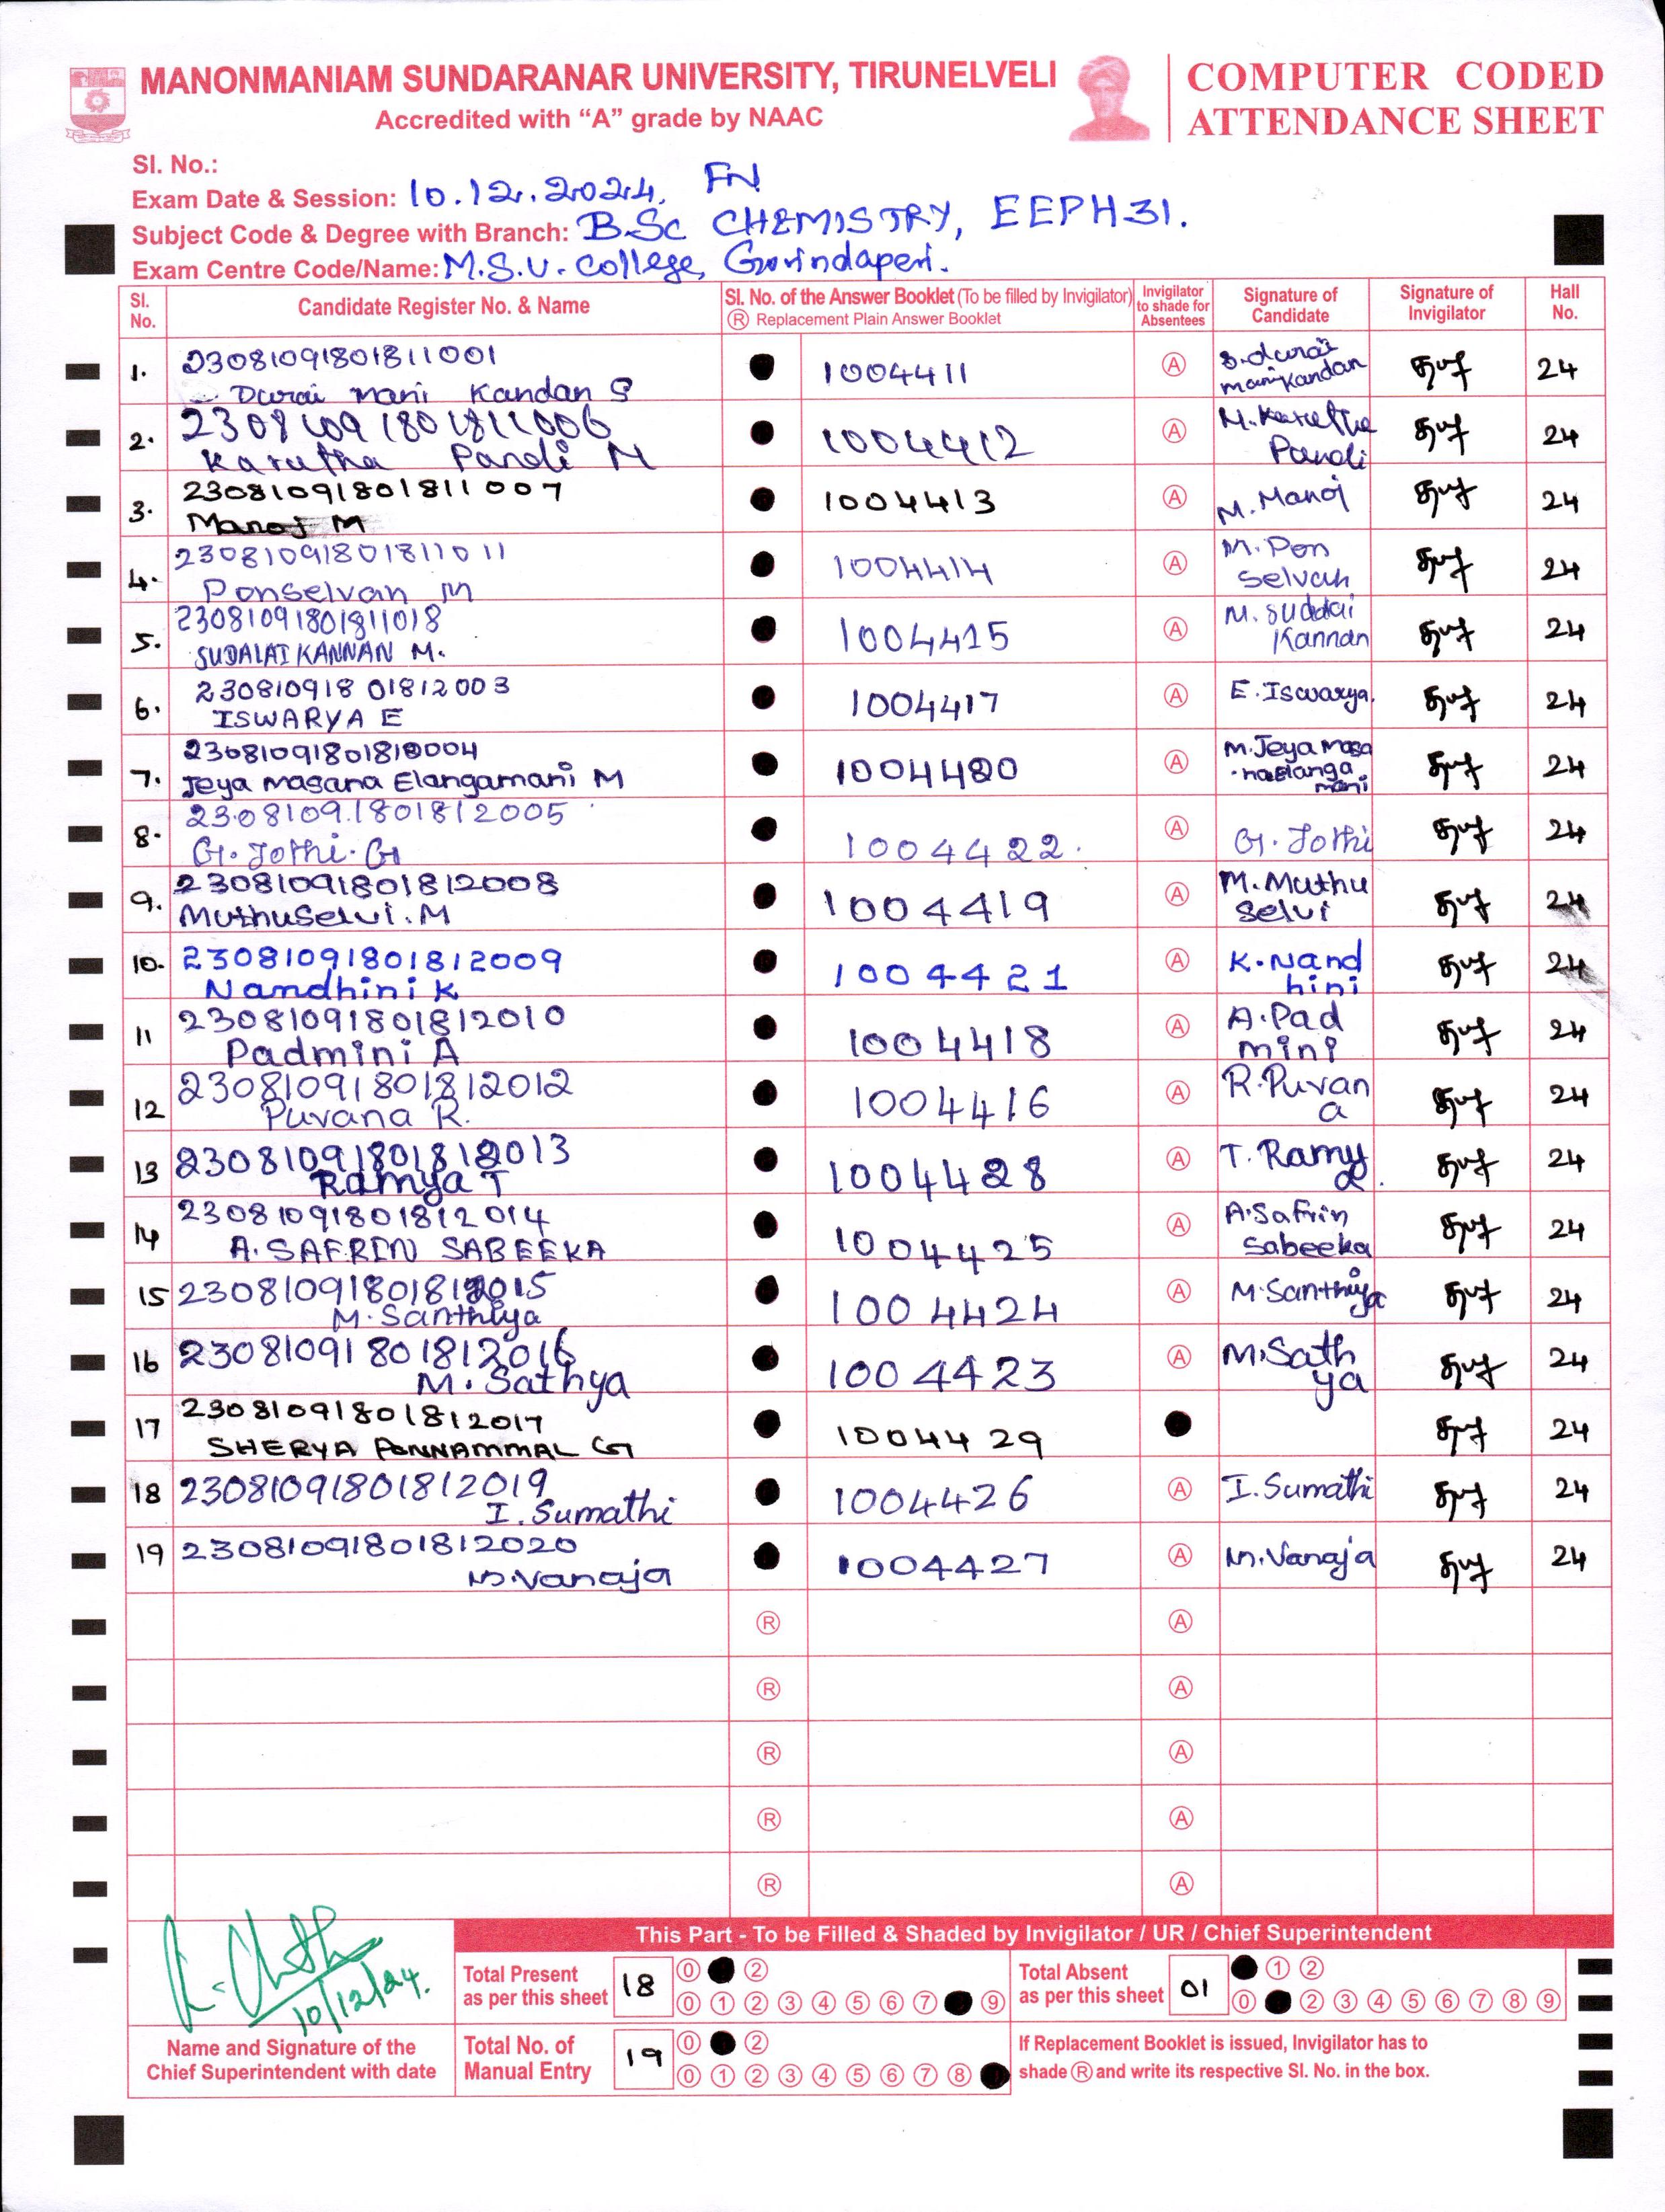 MANONMANIAM SUNDARANAR UNIVERSITY, TIRUNELVELI
Accredited with “A” grade by NAAC
COMPUTER CODED
ATTENDANCE SHEET
Sl. No.:
Exam Date & Session: 10.12.2024, FN
Subject Code & Degree with Branch: B.Sc CHEMISTRY, EEPH31.
Exam Centre Code/Name: M.S.U. College, Govindaperi.
Sl. No. Candidate Register No. & Name Sl. No. of the Answer Booklet (To be filled by Invigilator) Ⓡ Replacement Plain Answer Booklet Invigilator to shade for Absentees Signature of Candidate Signature of Invigilator Hall No.
1. 23081091801811001 1004411 Ⓐ S.durai manikandan 24
Durai mani Kandan S
2. 23081091801811006 1004412 Ⓐ M.Karutha Pandi 24
Karutha Pandi M
3. 23081091801811007 1004413 Ⓐ M.Manoj 24
Manoj M
4. 23081091801811011 1004414 Ⓐ M.Pon Selvan 24
Ponselvan M
5. 23081091801811018 1004415 Ⓐ M.Sudalai Kannan 24
SUDALAI KANNAN M.
6. 23081091801812003 1004417 Ⓐ E.Iswarya. 24
ISWARYA E
7. 23081091801812004 1004420 Ⓐ M.Jeya masa naelanga mani 24
Jeya masana Elangamani M
8. 23081091801812005 1004422. Ⓐ G.Jothi 24
G.Jothi.G
9. 23081091801812008 1004419 Ⓐ M.Muthu selvi 24
Muthuselvi.M
10. 23081091801812009 1004421 Ⓐ K.Nandhini 24
Nandhini K
11 23081091801812010 1004418 Ⓐ A.Padmini 24
Padmini A
12 23081091801812012 1004416 Ⓐ R.Puvana 24
Puvana R.
13 23081091801812013 1004428 Ⓐ T.Ramya. 24
Ramya T
14 23081091801812014 1004425 Ⓐ A.Safrin Sabeeka 24
A.SAFRIN SABEEKA
15 23081091801812015 1004424 Ⓐ M.Santhiya 24
M.Santhiya
16 23081091801812016 1004423 Ⓐ M.Sathya 24
M.Sathya
17 23081091801812017 1004429 24
SHERYA PONNAMMAL G
18 23081091801812019 1004426 Ⓐ I.Sumathi 24
I.Sumathi
19 23081091801812020 1004427 Ⓐ M.Vanaja 24
M.Vanaja
Ⓡ Ⓐ
Ⓡ Ⓐ
Ⓡ Ⓐ
Ⓡ Ⓐ
Ⓡ Ⓐ
10/12/24.
Name and Signature of the
Chief Superintendent with date
This Part - To be Filled & Shaded by Invigilator / UR / Chief Superintendent
Total Present as per this sheet 18
0 2
0 1 2 3 4 5 6 7 9
Total Absent as per this sheet 01
1 2
0 2 3 4 5 6 7 8 9
Total No. of Manual Entry 19
0 2
0 1 2 3 4 5 6 7 8
If Replacement Booklet is issued, Invigilator has to
shade Ⓡ and write its respective Sl. No. in the box.